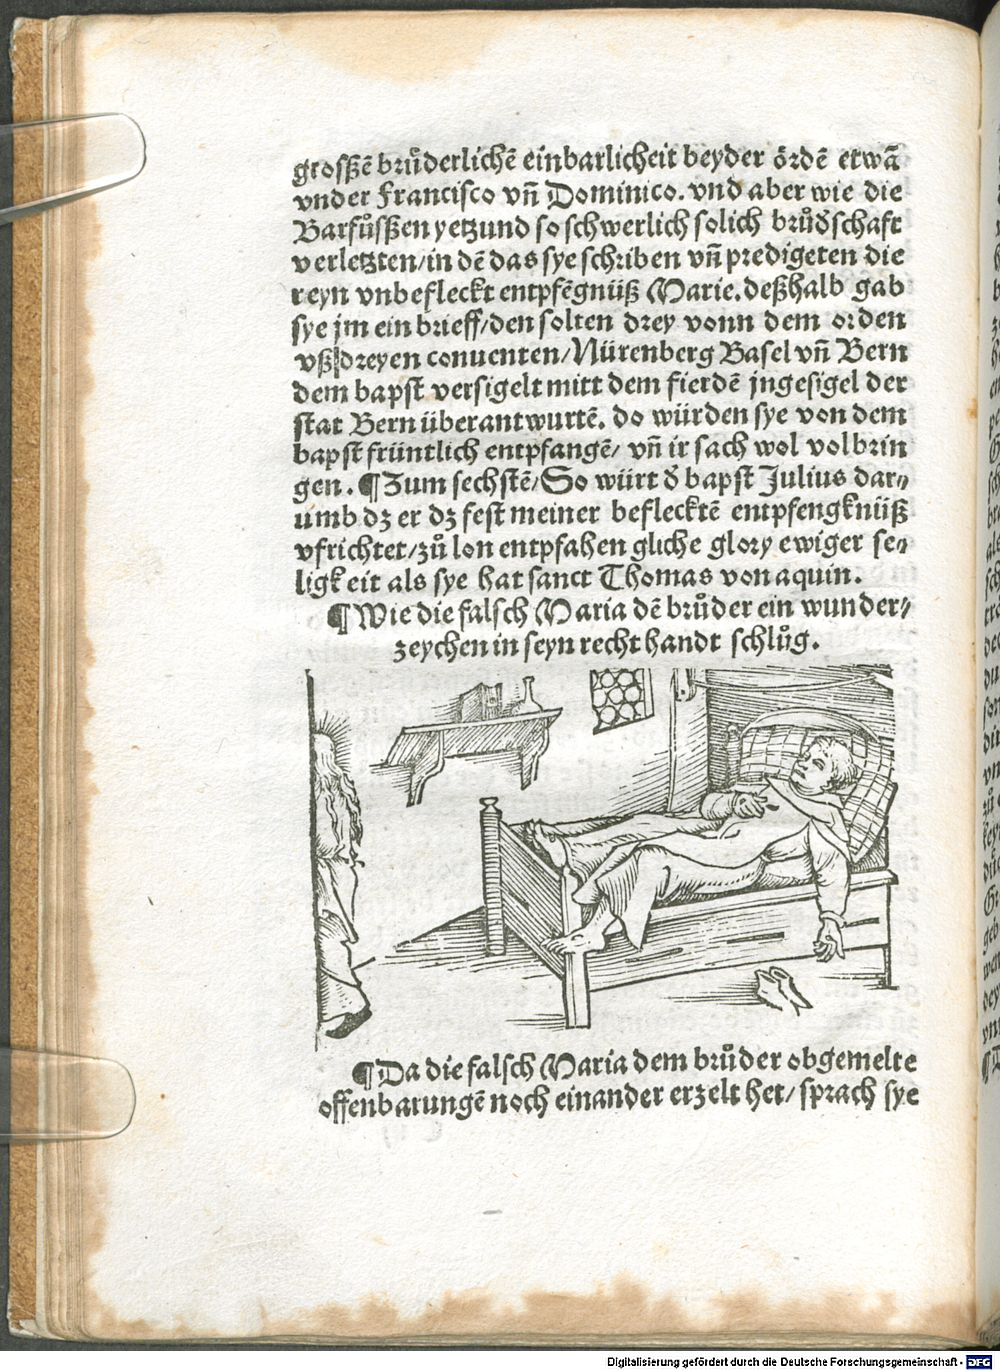 grosßē brůderlichē einbarlicheit beyder ördē etwā
vnder Francisco vñ Dominico. vnd aber wie die
Barfůsßen yetzund so schwerlich solich brůdschaft
verletzten/in dē das sye schriben vñ predigeten die
reyn vnbefleckt entpfēgnüß Marie. deßhalb gab
sye jm ein brieff/den solten drey vonn dem orden
vß dreyen conuenten/Nürenberg Basel vñ Bern
dem bapst versigelt mitt dem fierdē jngesigel der
stat Bern überantwurtē. do würden sye von dem
bapst früntlich entpfangē/ vñ ir sach wol volbrin
gen. ¶Zum sechstē/So würt d̛ bapst Julius dar⸗
umb dz er dz fest meiner beflecktē entpfengknüß
vfrichtet/zů lon entpfahen gliche glory ewiger se⸗
ligkeit als sye hat sanct Thomas von aquin.
¶Wie die falsch Maria dē brůder ein wunder⸗
zeychen in seyn recht handt schlůg.
¶Da die falsch Maria dem brůder obgemelte
offenbarungē noch einander erzelt het/ sprach sye
Digitalisierung gefördert durch die Deutsche Forschungsgemeinschaft - DFG